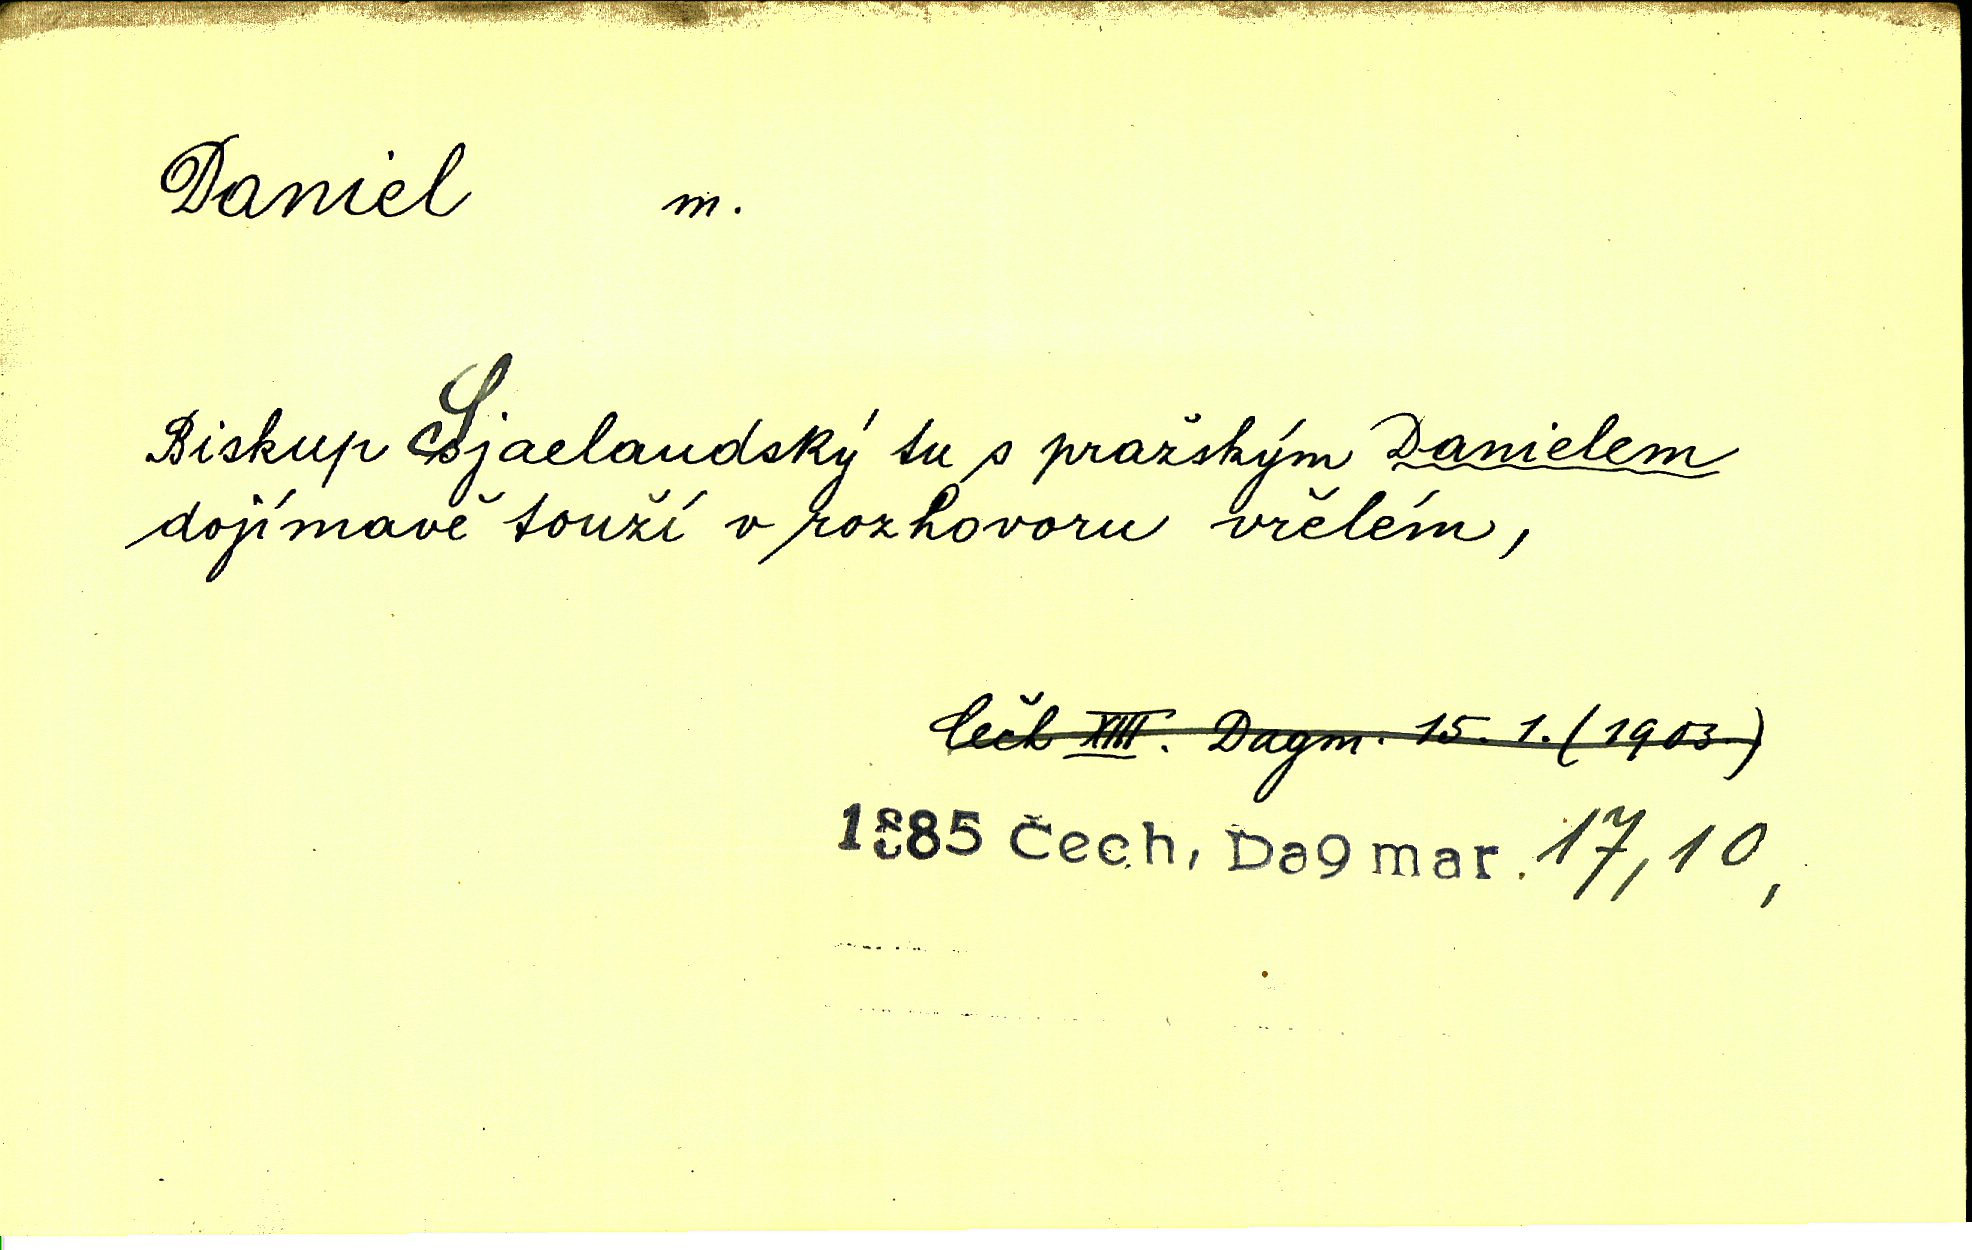 Daniel m.
Biskup Sjaelandský tu s pražským Danielem
dojímavě touží v rozhovoru vřelém,
Čech XIII. Dagm. 15. 1. (1903)
1885 Čech, Dagmar. 17,10,